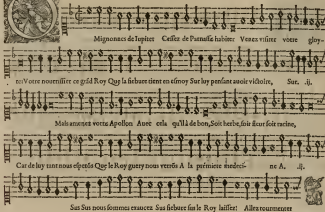 Mignonnes de Iupiter Cessez de Parnasse habiter Venez visiter votre gloy-
re: Votre nourrissier ce grãd Roy Que la fiebure tient en esmoy Sur luy pensant auoir victoire, Sur. .ij.
Mais amenez votre Apollon Auec cela qu'il à de bon, Soit herbe, soit fleur soit racine,
Car de luy tant nous esperõs Que le Roy guery nous verrõs A la premiere medeci- ne A. .ij.
Sus Sus nous sommes exaucez Sus fiebure sus le Roy laissez! Allez tourmenter